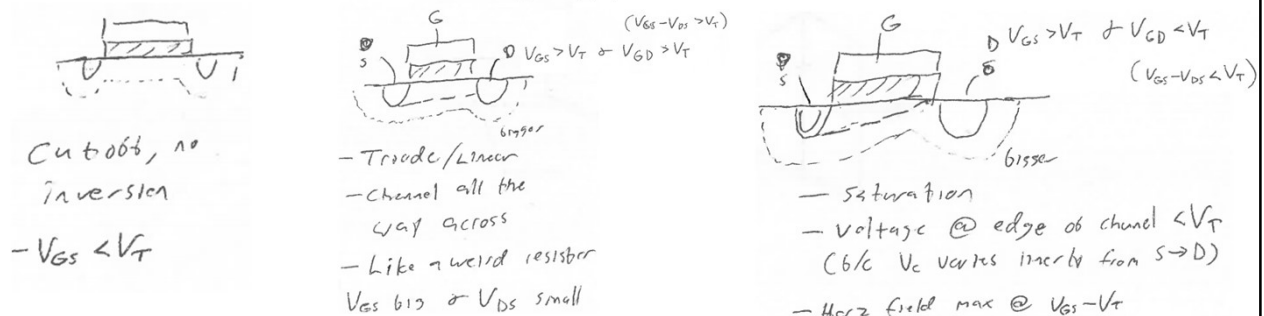 Cutoff, no
inversion
- VGS < VT
G
(VGS - VDS > VT)
S
D VGS > VT & VGD > VT
bigger
- Triode/Linear
- Channel all the
way across
- Like a weird resistor
VGS big & VDS small
G
D VGS > VT & VGD < VT
S
(VGS - VDS < VT)
bigger
- Saturation
- Voltage @ edge of chunel < VT
(b/c Vc varies from S→D)
- Horz field max @ VGS - VT